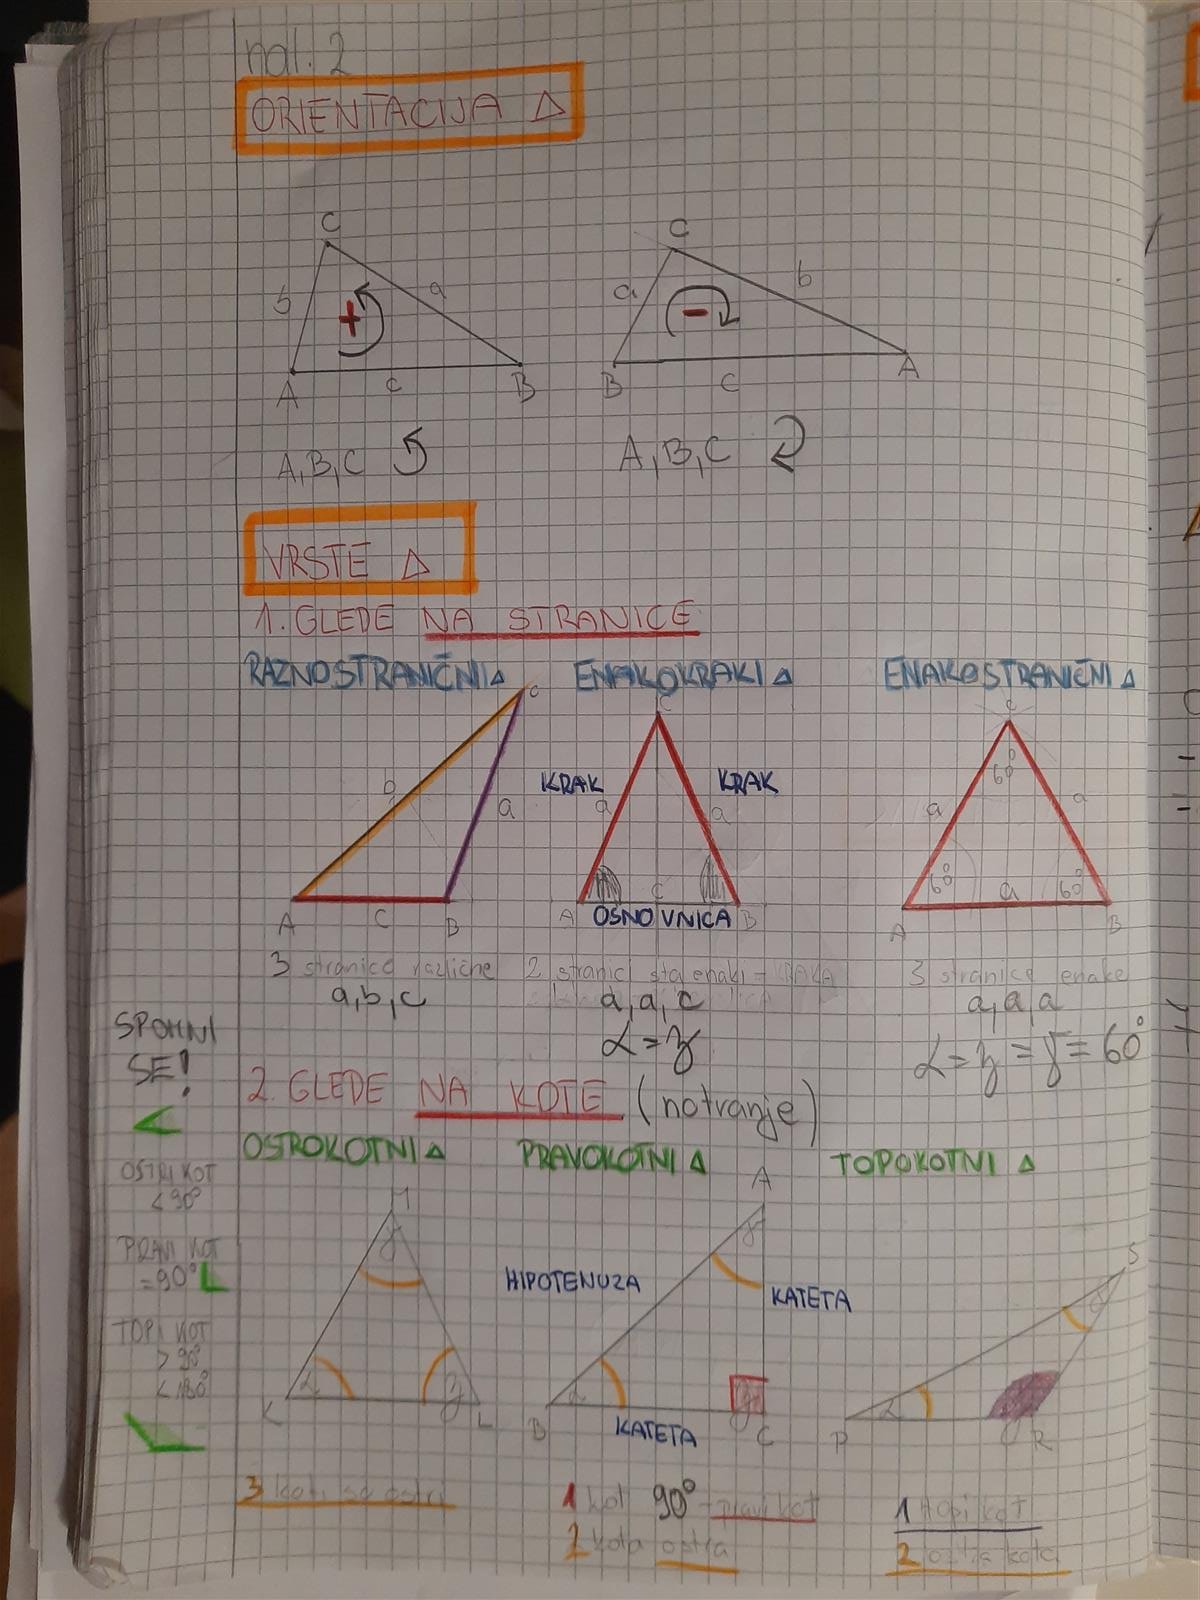 nal. 2
ORIENTACIJA Δ
C C
b a a b
+ -
A c B B c A
A, B, C A, B, C
VRSTE Δ
1. GLEDE NA STRANICE
RAZNOSTRANIČNI Δ ENAKOKRAKI Δ ENAKOSTRANIČNI Δ
C C C
60°
KRAK KRAK
b a a a a a
60° a 60°
c
A c B A OSNOVNICA B A B
3 stranice različne 2 stranici sta enaki - KRAKA 3 stranice enake
a, b, c a, a, c a, a, a
SPOMNI
SE!
α = β α = β = γ = 60°
2. GLEDE NA KOTE (notranje)
OSTROKOTNI Δ PRAVOKOTNI Δ TOPOKOTNI Δ
OSTRI KOT
< 90°
PRAVI KOT
= 90°
TOPI KOT
> 90°
< 180°
M A S
γ γ
HIPOTENUZA KATETA
α β α α
K L B KATETA C P R
3 koti so ostri 1 kot 90° - pravi kot 1 topi kot
2 kota ostra 2 ostra kota